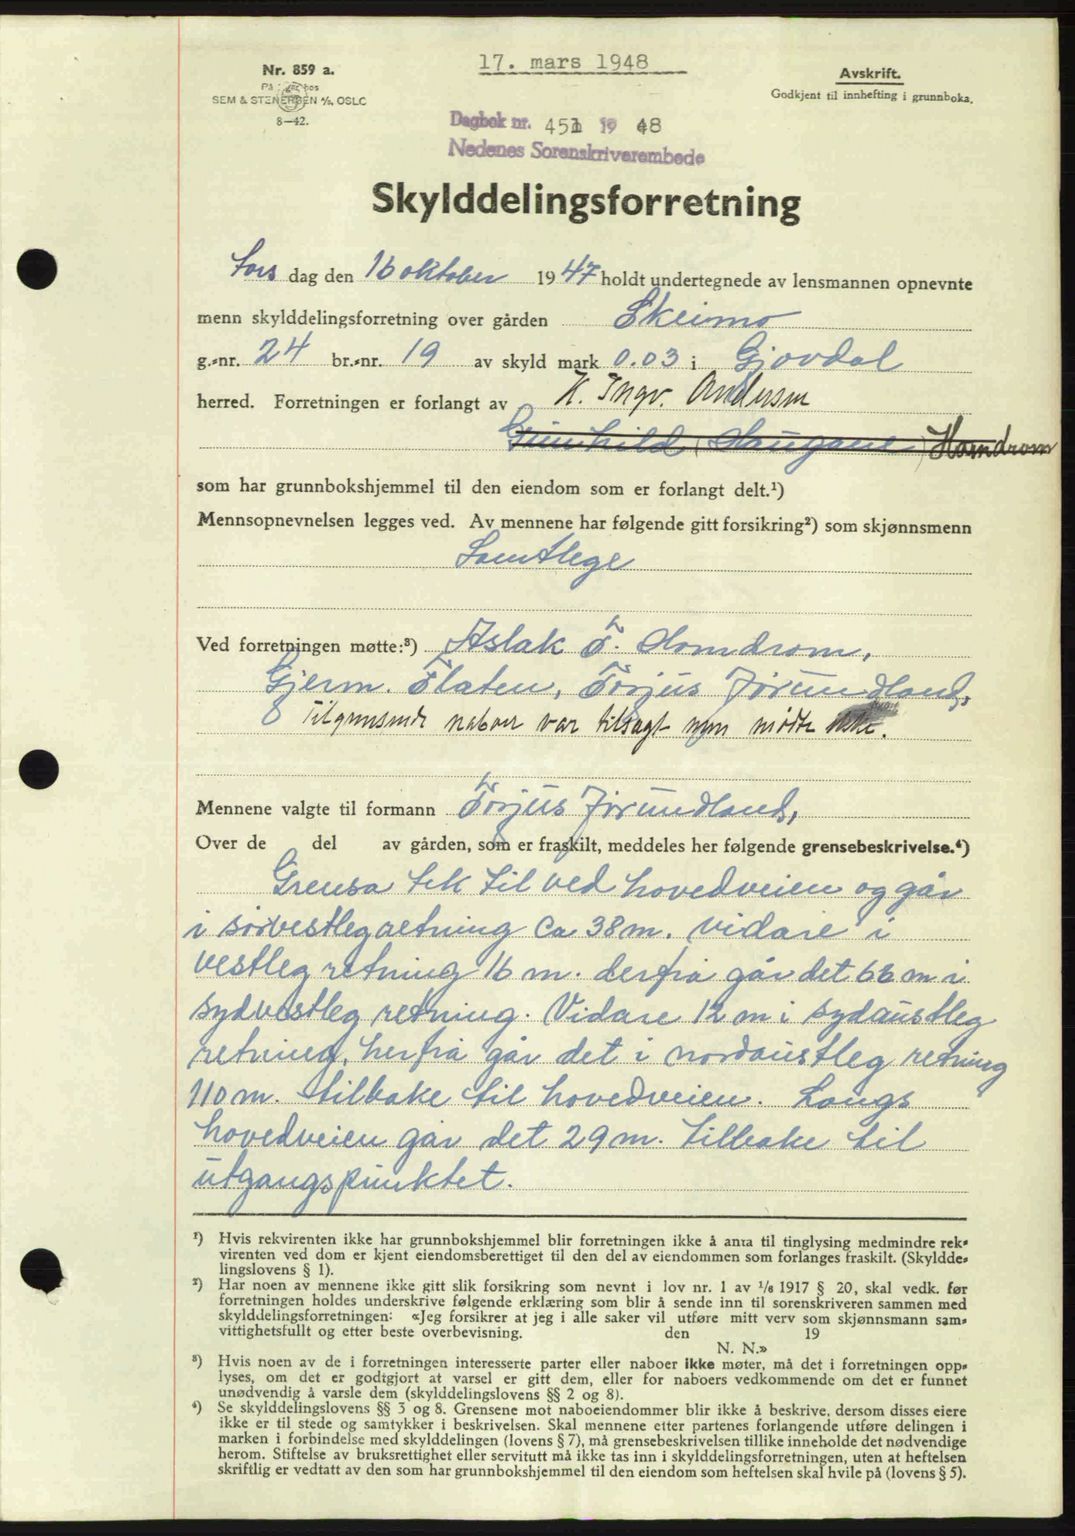 17. mars 1948
Nr. 859 a.
På lager hos
SEM & STENERSEN A/S, OSLO
8—42.
Avskrift.
Godkjent til innhefting i grunnboka.
Dagbok nr. 451 19 48
Nedenes Sorenskriverembede
Skylddelingsforretning
Tors dag den 16 oktober 1947 holdt undertegnede av lensmannen opnevnte
menn skylddelingsforretning over gården Skeimo
g.-nr. 24 br.-nr. 19 av skyld mark 0.03 i Gjøvdal
herred. Forretningen er forlangt av K. Ingv. Andersen
Gunhild Haugane Hamdrom
som har grunnbokshjemmel til den eiendom som er forlangt delt.¹)
Mennsopnevnelsen legges ved. Av mennene har følgende gitt forsikring²) som skjønnsmenn
Samtlege
Ved forretningen møtte:³) Aslak T. Homdrom,
Gjerm. Flaten, Torjus Jørundland,
Tilgrensende naboer var tilsagt men møtte ikke.
Mennene valgte til formann Torjus Jørundland,
Over de del av gården, som er fraskilt, meddeles her følgende grensebeskrivelse.⁴)
Grensa tek til ved hovedveien og går
i sørvestleg retning ca 38 m. vidare i
vestleg retning 16 m. derfra går det 66 m i
sydvestleg retning. Vidare 12 m i sydaustleg
retning, herfra går det i nordaustleg retning
110 m. tilbake til hovedveien. Langs
hovedveien går det 29 m. tilbake til
utgangspunktet.
¹) Hvis rekvirenten ikke har grunnbokshjemmel blir forretningen ikke å anta til tinglysing medmindre rek-
virenten ved dom er kjent eiendomsberettiget til den del av eiendommen som forlanges fraskilt. (Skyldde-
lingslovens § 1).
²) Har noen av mennene ikke gitt slik forsikring som nevnt i lov nr. 1 av 1/6 1917 § 20, skal vedk. før
forretningen holdes underskrive følgende erklæring som blir å sende inn til sorenskriveren sammen med
skylddelingsforretningen: «Jeg forsikrer at jeg i alle saker vil utføre mitt verv som skjønnsmann sam-
vittighetsfullt og etter beste overbevisning. den 19
N. N.»
³) Hvis noen av de i forretningen interesserte parter eller naboer ikke møter, må det i forretningen opp-
lyses, om det er godtgjort at varsel er gitt dem, eller for naboers vedkommende om det er funnet
unødvendig å varsle dem (skylddelingslovens §§ 2 og 8).
⁴) Se skylddelingslovens §§ 3 og 8. Grensene mot naboeiendommer blir ikke å beskrive, dersom disses eiere
ikke er til stede og samtykker i beskrivelsen. Skal mennene etter partenes forlangende utføre delingen i
marken i forbindelse med skylddelingen (lovens § 7), må grensebeskrivelsen tillike inneholde det nødvendige
herom. Stiftelse av bruksrettighet eller servitutt må ikke tas inn i skylddelingsforretningen, uten at heftelsen
skriftlig er vedtatt av den som har grunnbokshjemmel til den eiendom som heftelsen skal hvile på (lovens § 5).